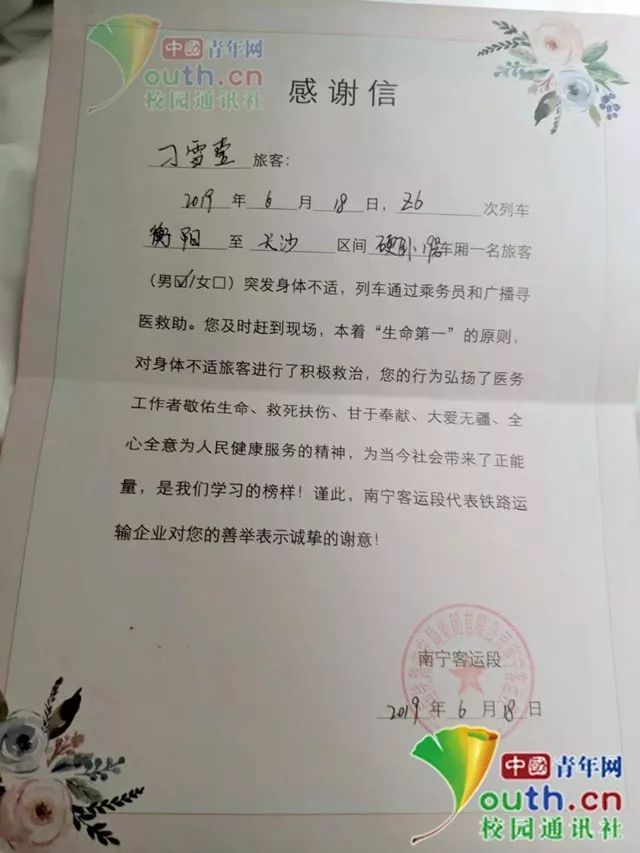 中國青年网
youth.cn
校园通讯社
感谢信
刁雪莹 旅客：
2019 年 6 月 18 日， Z6 次列车
衡阳 至 长沙 区间 硬卧 19 车厢一名旅客
（男☑/女□）突发身体不适，列车通过乘务员和广播寻
医救助。您及时赶到现场，本着“生命第一”的原则，
对身体不适旅客进行了积极救治，您的行为弘扬了医务
工作者敬佑生命、救死扶伤、甘于奉献、大爱无疆、全
心全意为人民健康服务的精神，为当今社会带来了正能
量，是我们学习的榜样！谨此，南宁客运段代表铁路运
输企业对您的善举表示诚挚的谢意！
南宁客运段
2019 年 6 月 18 日
中國青年网
youth.cn
校园通讯社